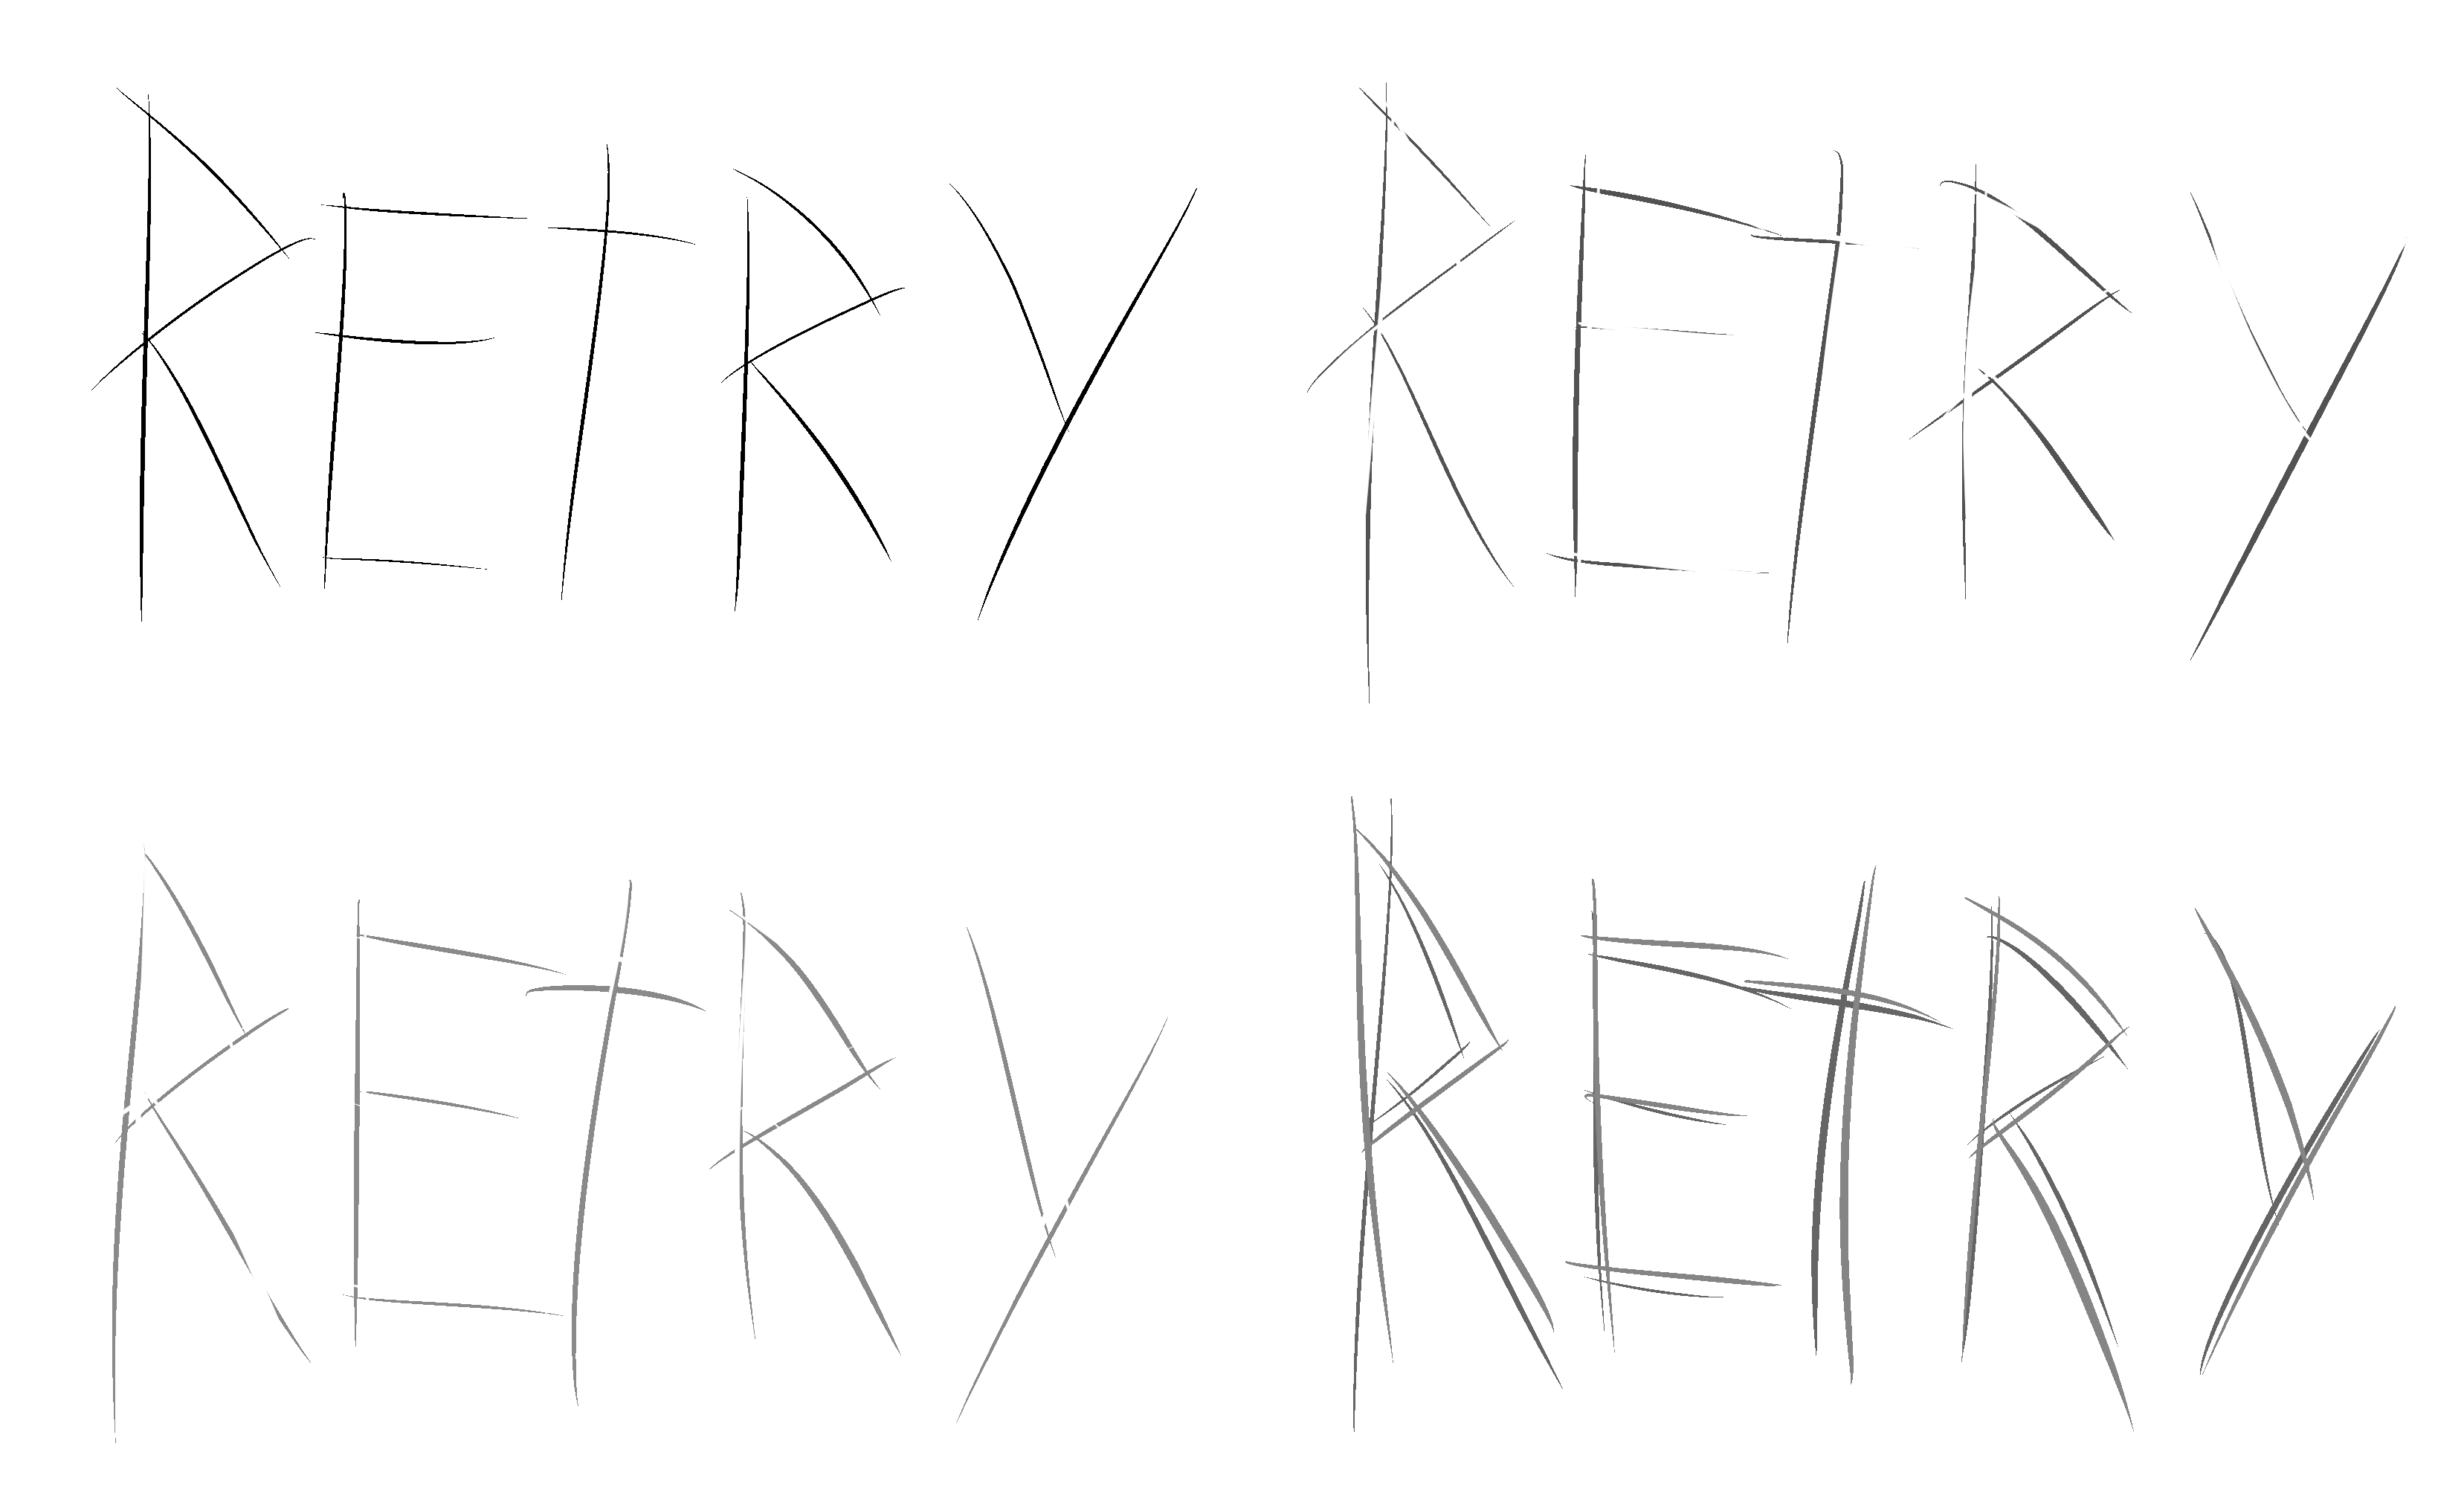 RETRY RETRY
RETRY RETRY